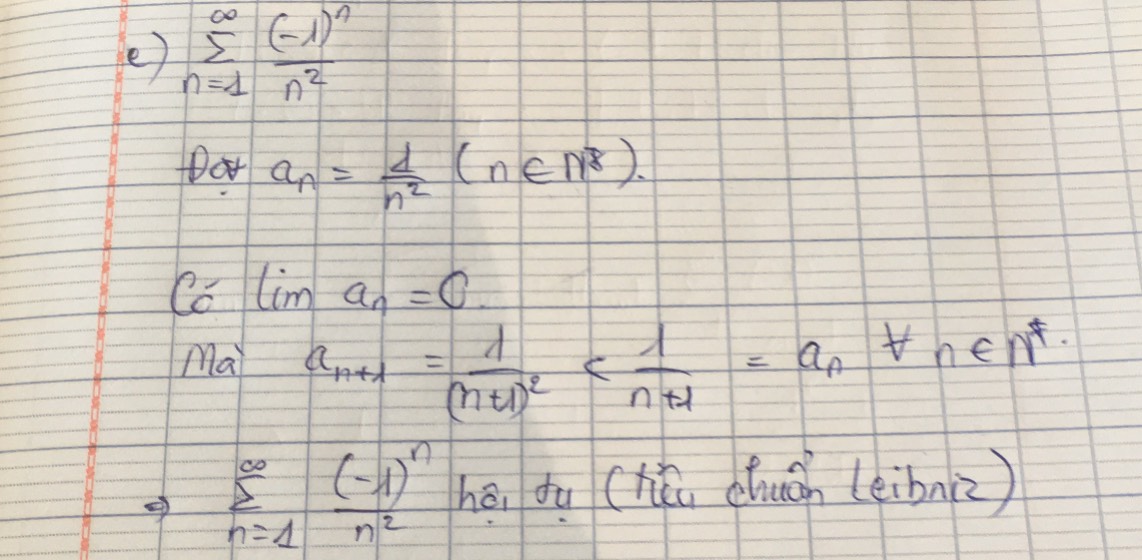 e) \sum_{n=1}^{\infty} \frac{(-1)^n}{n^2}
Đặt a_n = \frac{1}{n^2} (n ∈ N*).
Có lim a_n = 0.
Mà a_{n+1} = \frac{1}{(n+1)^2} < \frac{1}{n+1} = a_n ∀ n ∈ N*.
⇒ \sum_{n=1}^{\infty} \frac{(-1)^n}{n^2} hội tụ (tiêu chuẩn Leibniz)